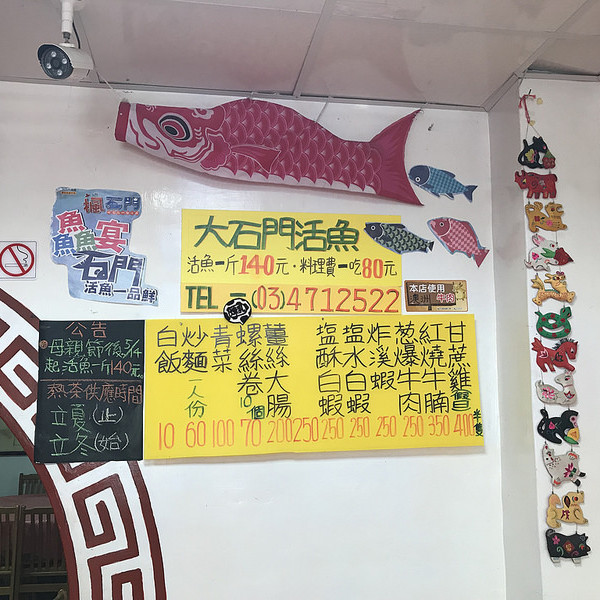 瘋石門
魚魚魚宴
石門
活魚一品鮮
大石門活魚
活魚一斤140元．料理費一吃80元
TEL－(03)4712522
本店使用
澳洲牛肉
公告
母親節後5/14
起活魚一斤140元.
熱茶供應時間
立夏(止)
立冬(始)
白飯 10
炒麵一人份 60
青菜 100
螺絲卷10個 70
薑絲大腸 200
塩酥白蝦 250
塩水白蝦 250
炸溪蝦 250
葱爆牛肉 250
紅燒牛腩 350
甘蔗雞 半隻 400
戌